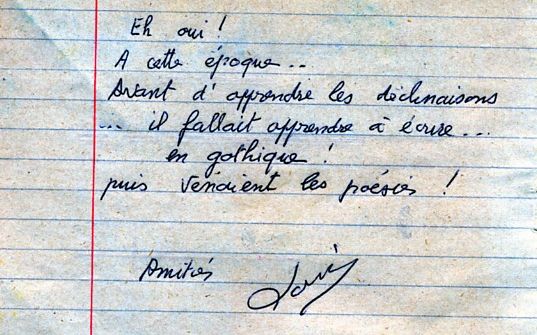 Eh oui !
A cette époque..
Avant d'apprendre les déclinaisons
... il fallait apprendre à écrire...
en gothique !
puis venaient les poésies !
Amitiés